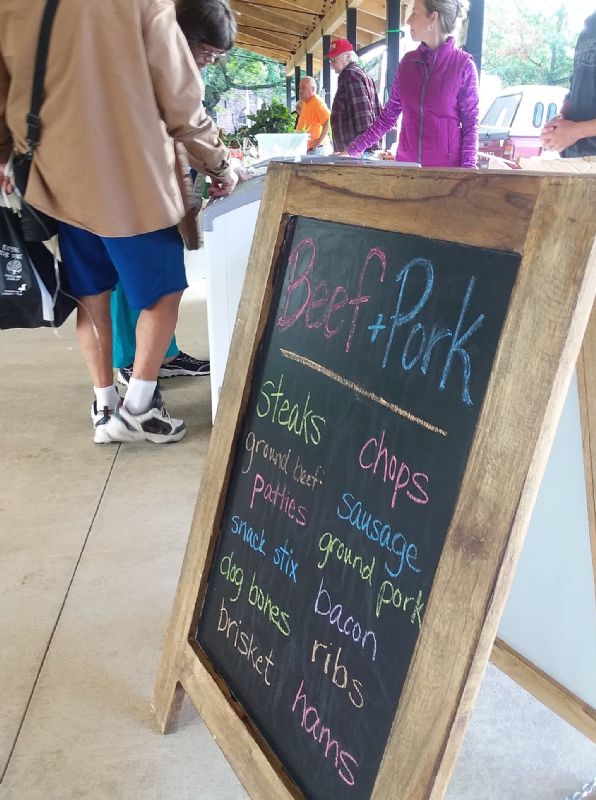 Beef + Pork
steaks
ground beef
patties
snack stix
dog bones
brisket
chops
sausage
ground pork
bacon
ribs
hams